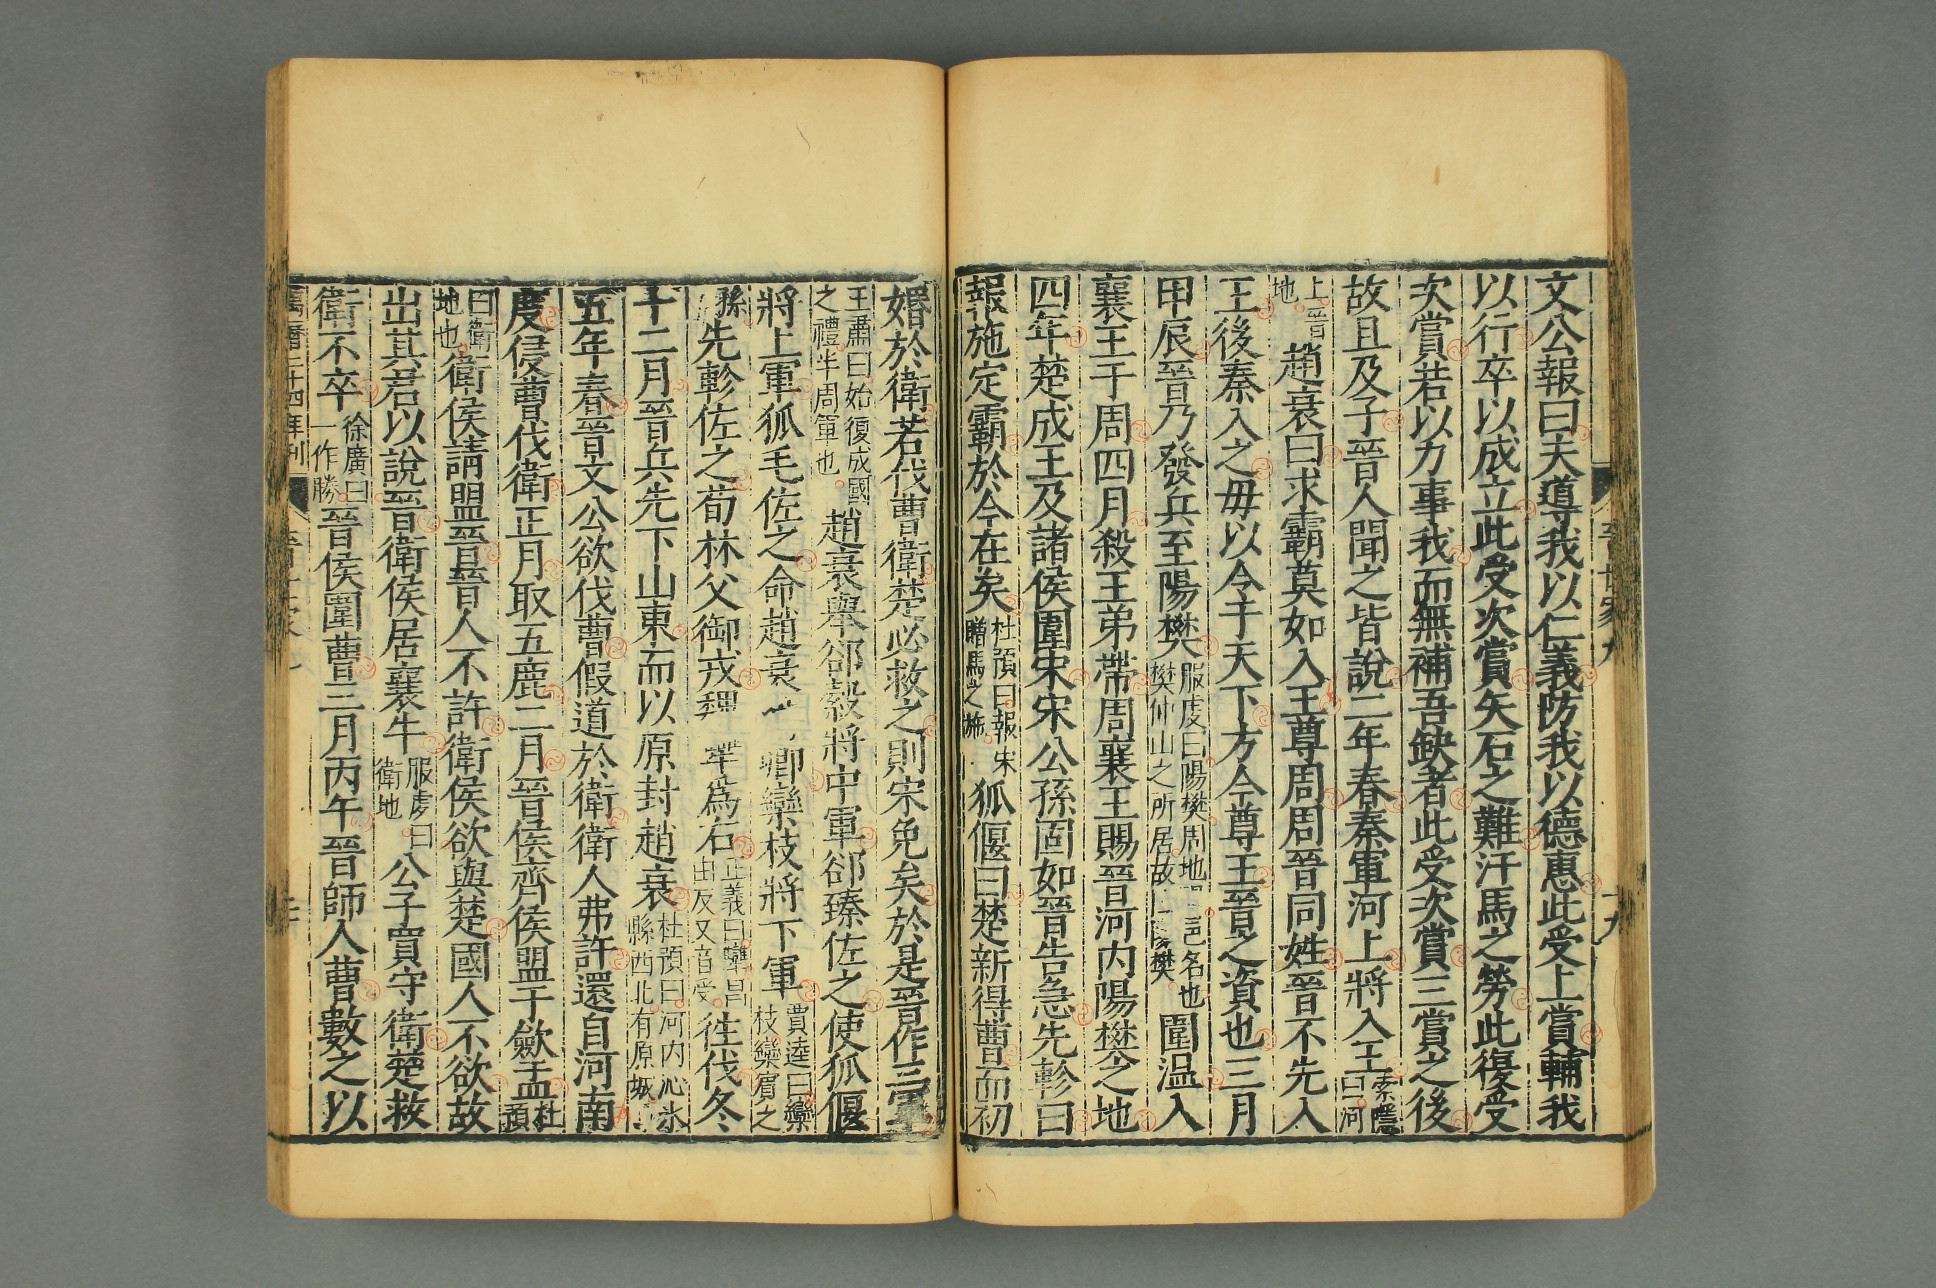 文公報曰夫導我以仁義防我以德惠此受上賞輔我
以行卒以成立此受次賞矢石之難汗馬之勞此復受
次賞若以力事我而無補吾缺者此受次賞三賞之後
故且及子晉人聞之皆說二年春秦軍河上將入王索隱
曰河
上晉
地趙衰曰求霸莫如入王尊周周晉同姓晉不先入
王後秦入之毋以令于天下方今尊王晉之資也三月
甲辰晉乃發兵至陽樊服虔曰陽樊周地
邑名也
樊仲山之所居故
樊圍溫入
襄王于周四月殺王弟帶周襄王賜晉河內陽樊之地
四年楚成王及諸侯圍宋宋公孫固如晉告急先軫曰
報施定霸於今在矣杜預曰報宋
贈馬之施狐偃曰楚新得曹而初
婚於衛若伐曹衛楚必救之則宋免矣於是晉作三軍
王肅曰始復成國
之禮半周軍也趙衰舉郤縠將中軍郤臻佐之使狐偃
將上軍狐毛佐之命趙衰
卿欒枝將下軍賈逵曰欒
枝欒賓之
孫先軫佐之荀林父御戎
犨為右正義曰犨昌
由反又音受往伐冬
十二月晉兵先下山東而以原封趙衰杜預曰河內沁水
縣西北有原城
五年春晉文公欲伐曹假道於衛衛人弗許還自河南
度侵曹伐衛正月取五鹿二月晉侯齊侯盟于歛盂杜預
曰衛
地也衛侯請盟晉晉人不許衛侯欲與楚國人不欲故
出其君以說晉衛侯居襄牛服虔曰
衛地公子買守衛楚救
衛不卒徐廣曰
一作勝晉侯圍曹三月丙午晉師入曹數之以
萬曆二十四年刊
晉世家九
十九